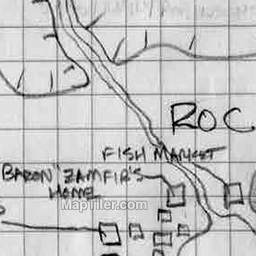 ROC
FISH MARKET
BARON ZAMFIR'S
HOME
MapTiler.com